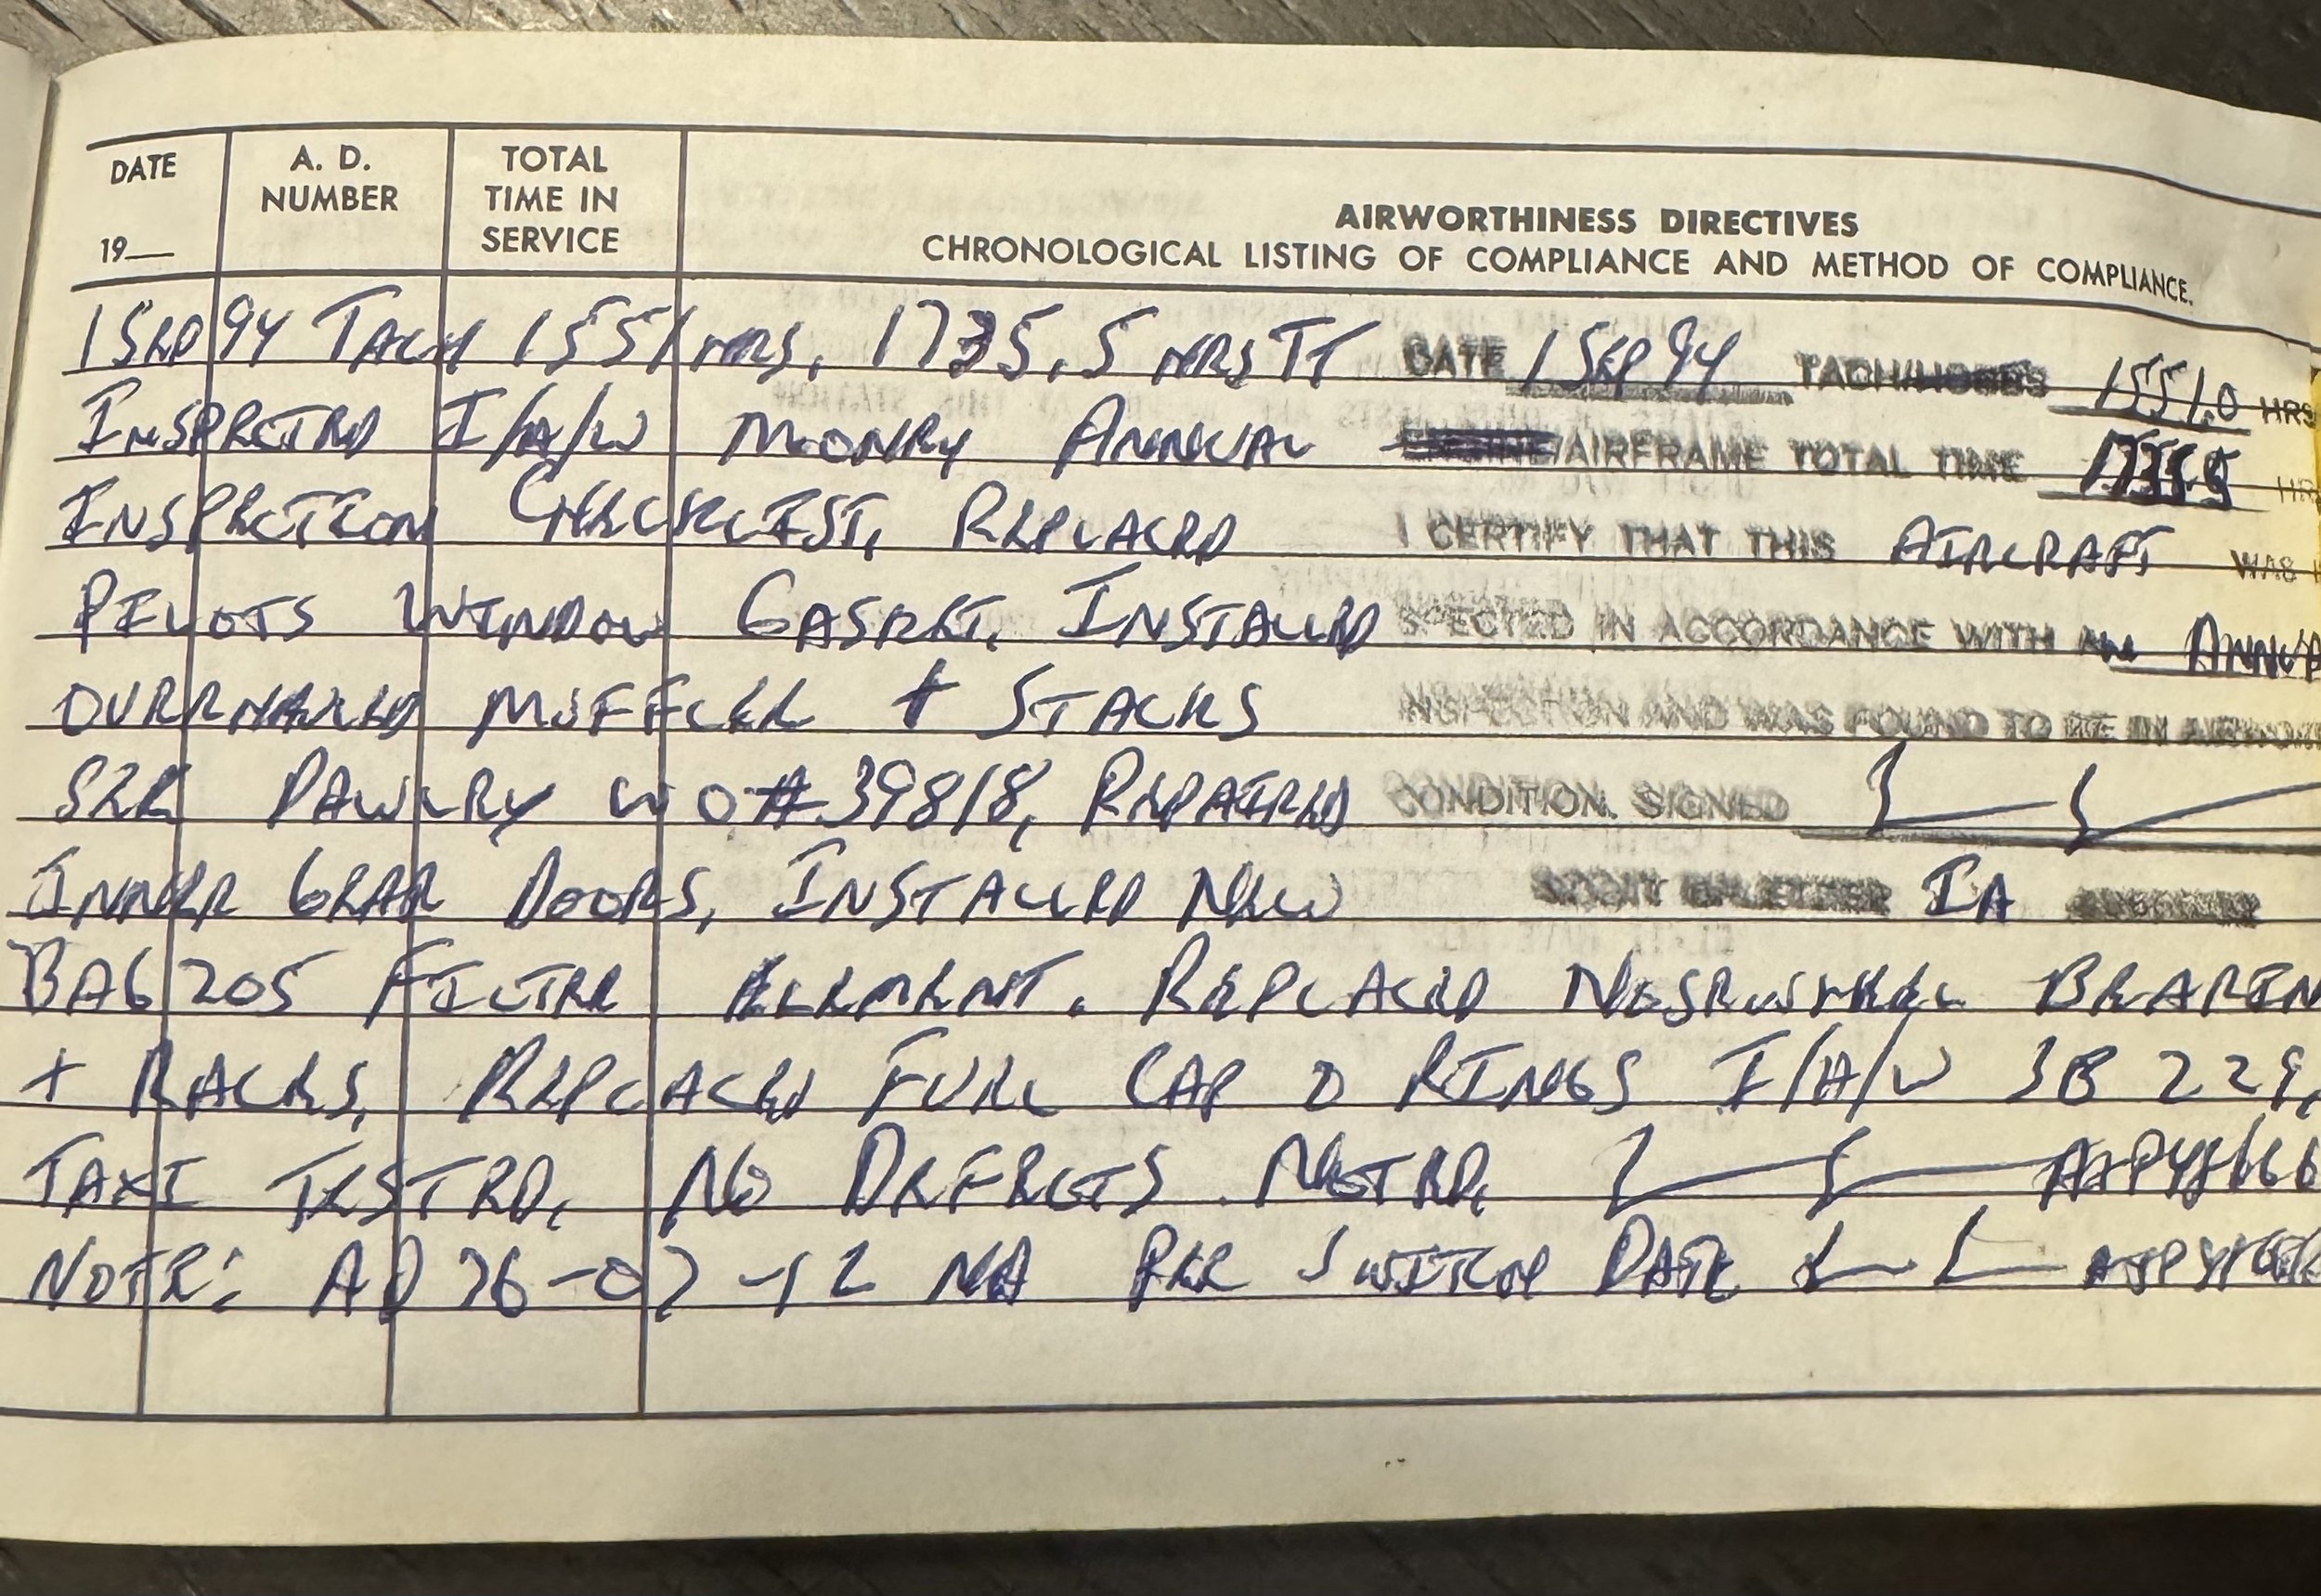 DATE
19__
A. D.
NUMBER
TOTAL
TIME IN
SERVICE
AIRWORTHINESS DIRECTIVES
CHRONOLOGICAL LISTING OF COMPLIANCE AND METHOD OF COMPLIANCE.
1 SEP 94 TACH 1551 HRS, 1735.5 HRS TT
INSPECTED I/A/W MOONEY ANNUAL
INSPECTION CHECKLIST, REPLACED
PILOTS WINDOW GASKET, INSTALLED
OVERHAULED MUFFLER + STACKS
SEE DAWLEY WO# 39818, REPAIRED
INNER GEAR DOORS, INSTALLED NEW
BA6205 FILTER ELEMENT. REPLACED NOSEWHEEL BEARIN
+ RACES, REPLACED FUEL CAP O RINGS I/A/W SB 229,
TAXI TESTED, NO DEFECTS NOTED,
NOTE: AD 76-07-12 NA PER SWITCH DATE
DATE 1 SEP 94 TACH/HOBBS 1551.0 HRS
/AIRFRAME TOTAL TIME 1735.5 HR
I CERTIFY THAT THIS AIRCRAFT WAS I
SPECTED IN ACCORDANCE WITH AN ANNUA
INSPECTION AND WAS FOUND TO BE IN AIRWOR
CONDITION. SIGNED
IA